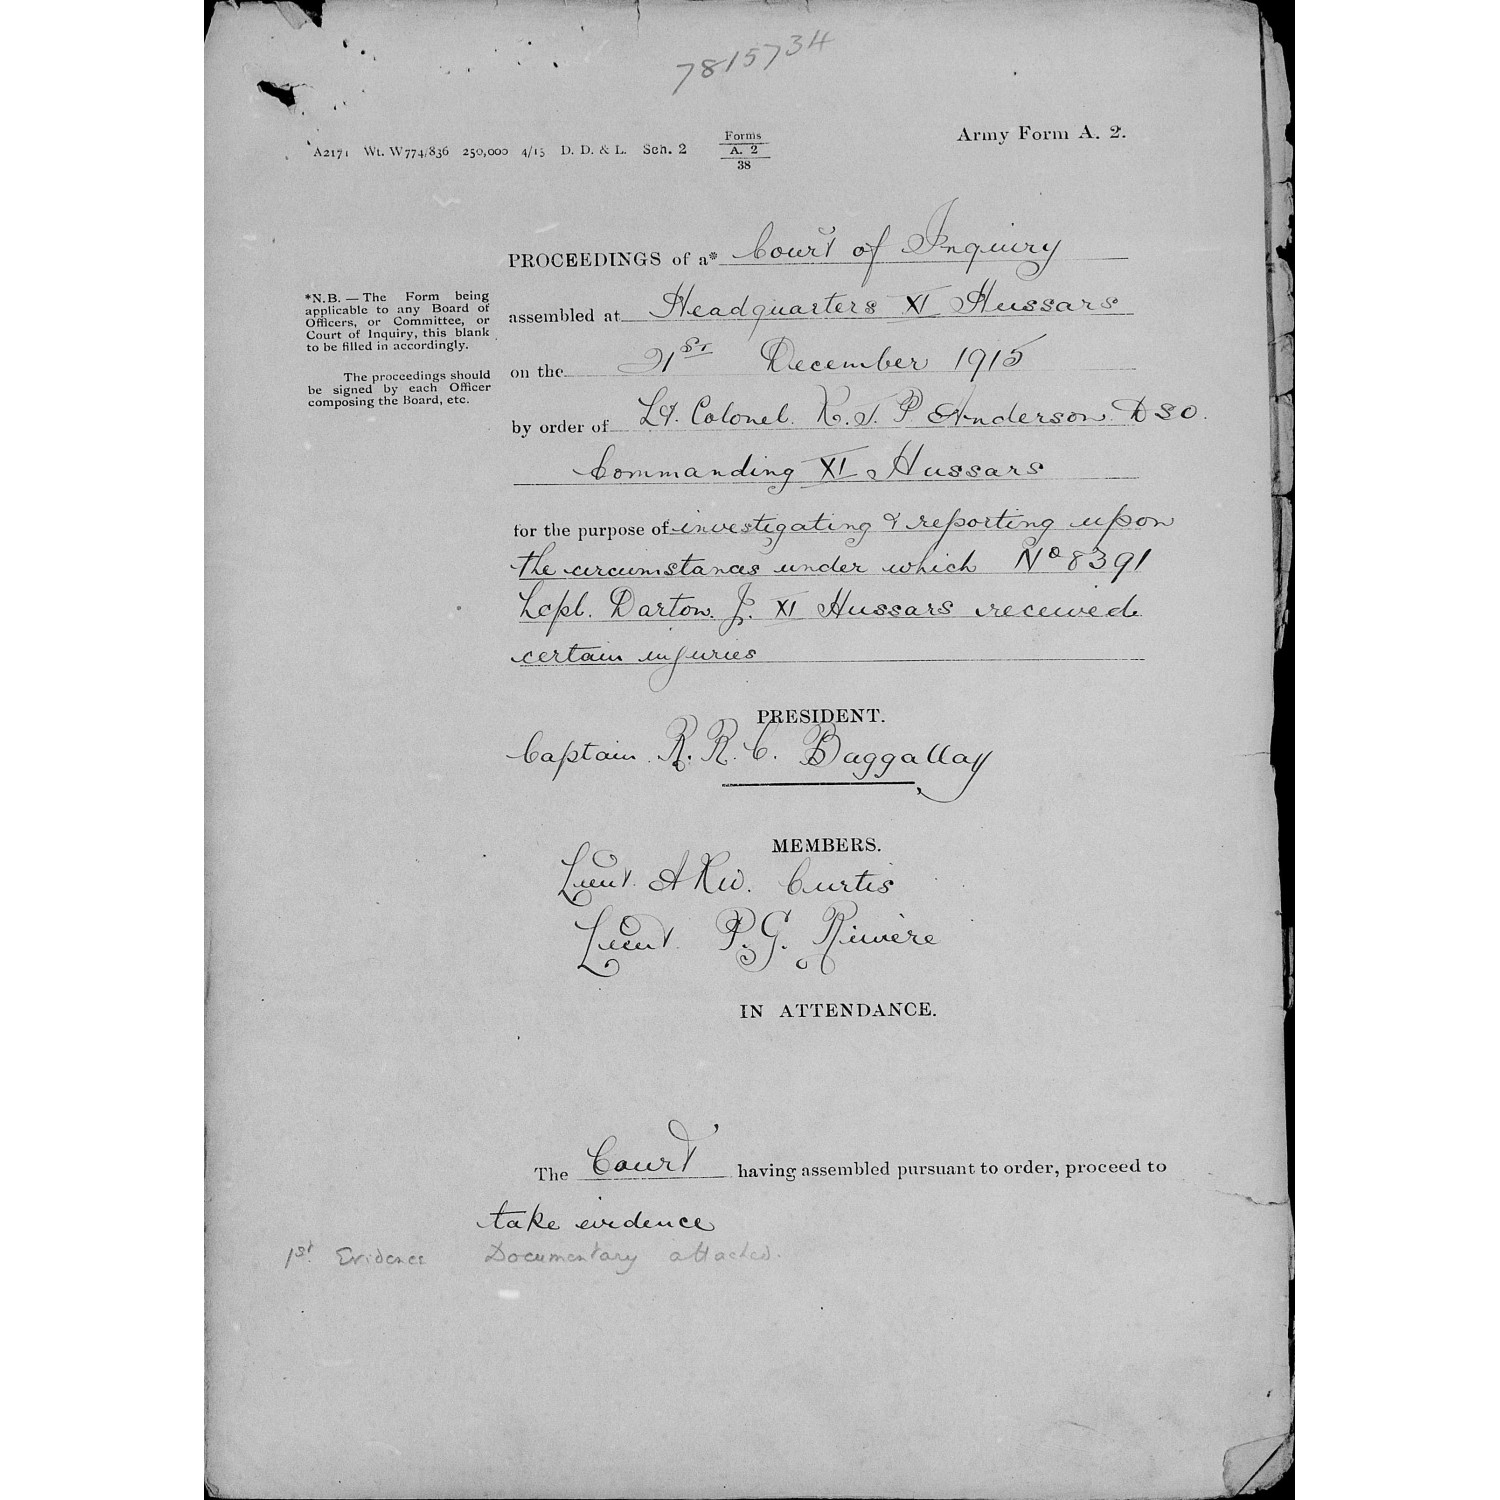 7815734
Army Form A. 2.
A2171 Wt. W774/836 250,000 4/15 D. D. & L. Sch. 2 Forms
A. 2
38
PROCEEDINGS of a* Court of Inquiry
*N.B. — The Form being
applicable to any Board of
Officers, or Committee, or
Court of Inquiry, this blank
to be filled in accordingly.
The proceedings should
be signed by each Officer
composing the Board, etc.
assembled at Headquarters XI Hussars
on the 21st December 1915
by order of Lt. Colonel. R. T. P Anderson. DSO.
Commanding XI Hussars
for the purpose of investigating & reporting upon
the circumstances under which No 8391
Lcpl. Darton. J. XI Hussars received
certain injuries
PRESIDENT.
Captain. R. R. C. Baggallay
MEMBERS.
Lieut. Curtis
Lieut. P. G. Rivière
IN ATTENDANCE.
The Court having assembled pursuant to order, proceed to
take evidence
1st. Evidence Documentary attached.